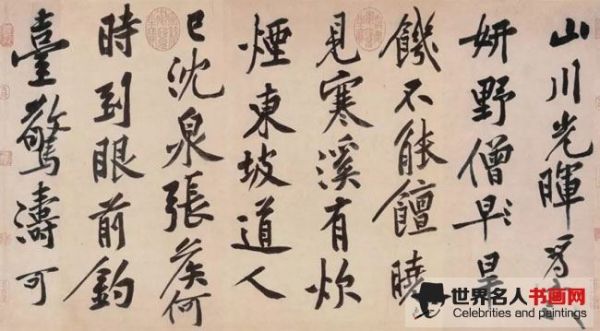 山川光暉為我
妍野僧早旱
饑不能饘曉
見寒溪有炊
煙東坡道人
已沈泉張侯何
時到眼前釣
臺驚濤可
世界名人书画网
Celebrities and paintings